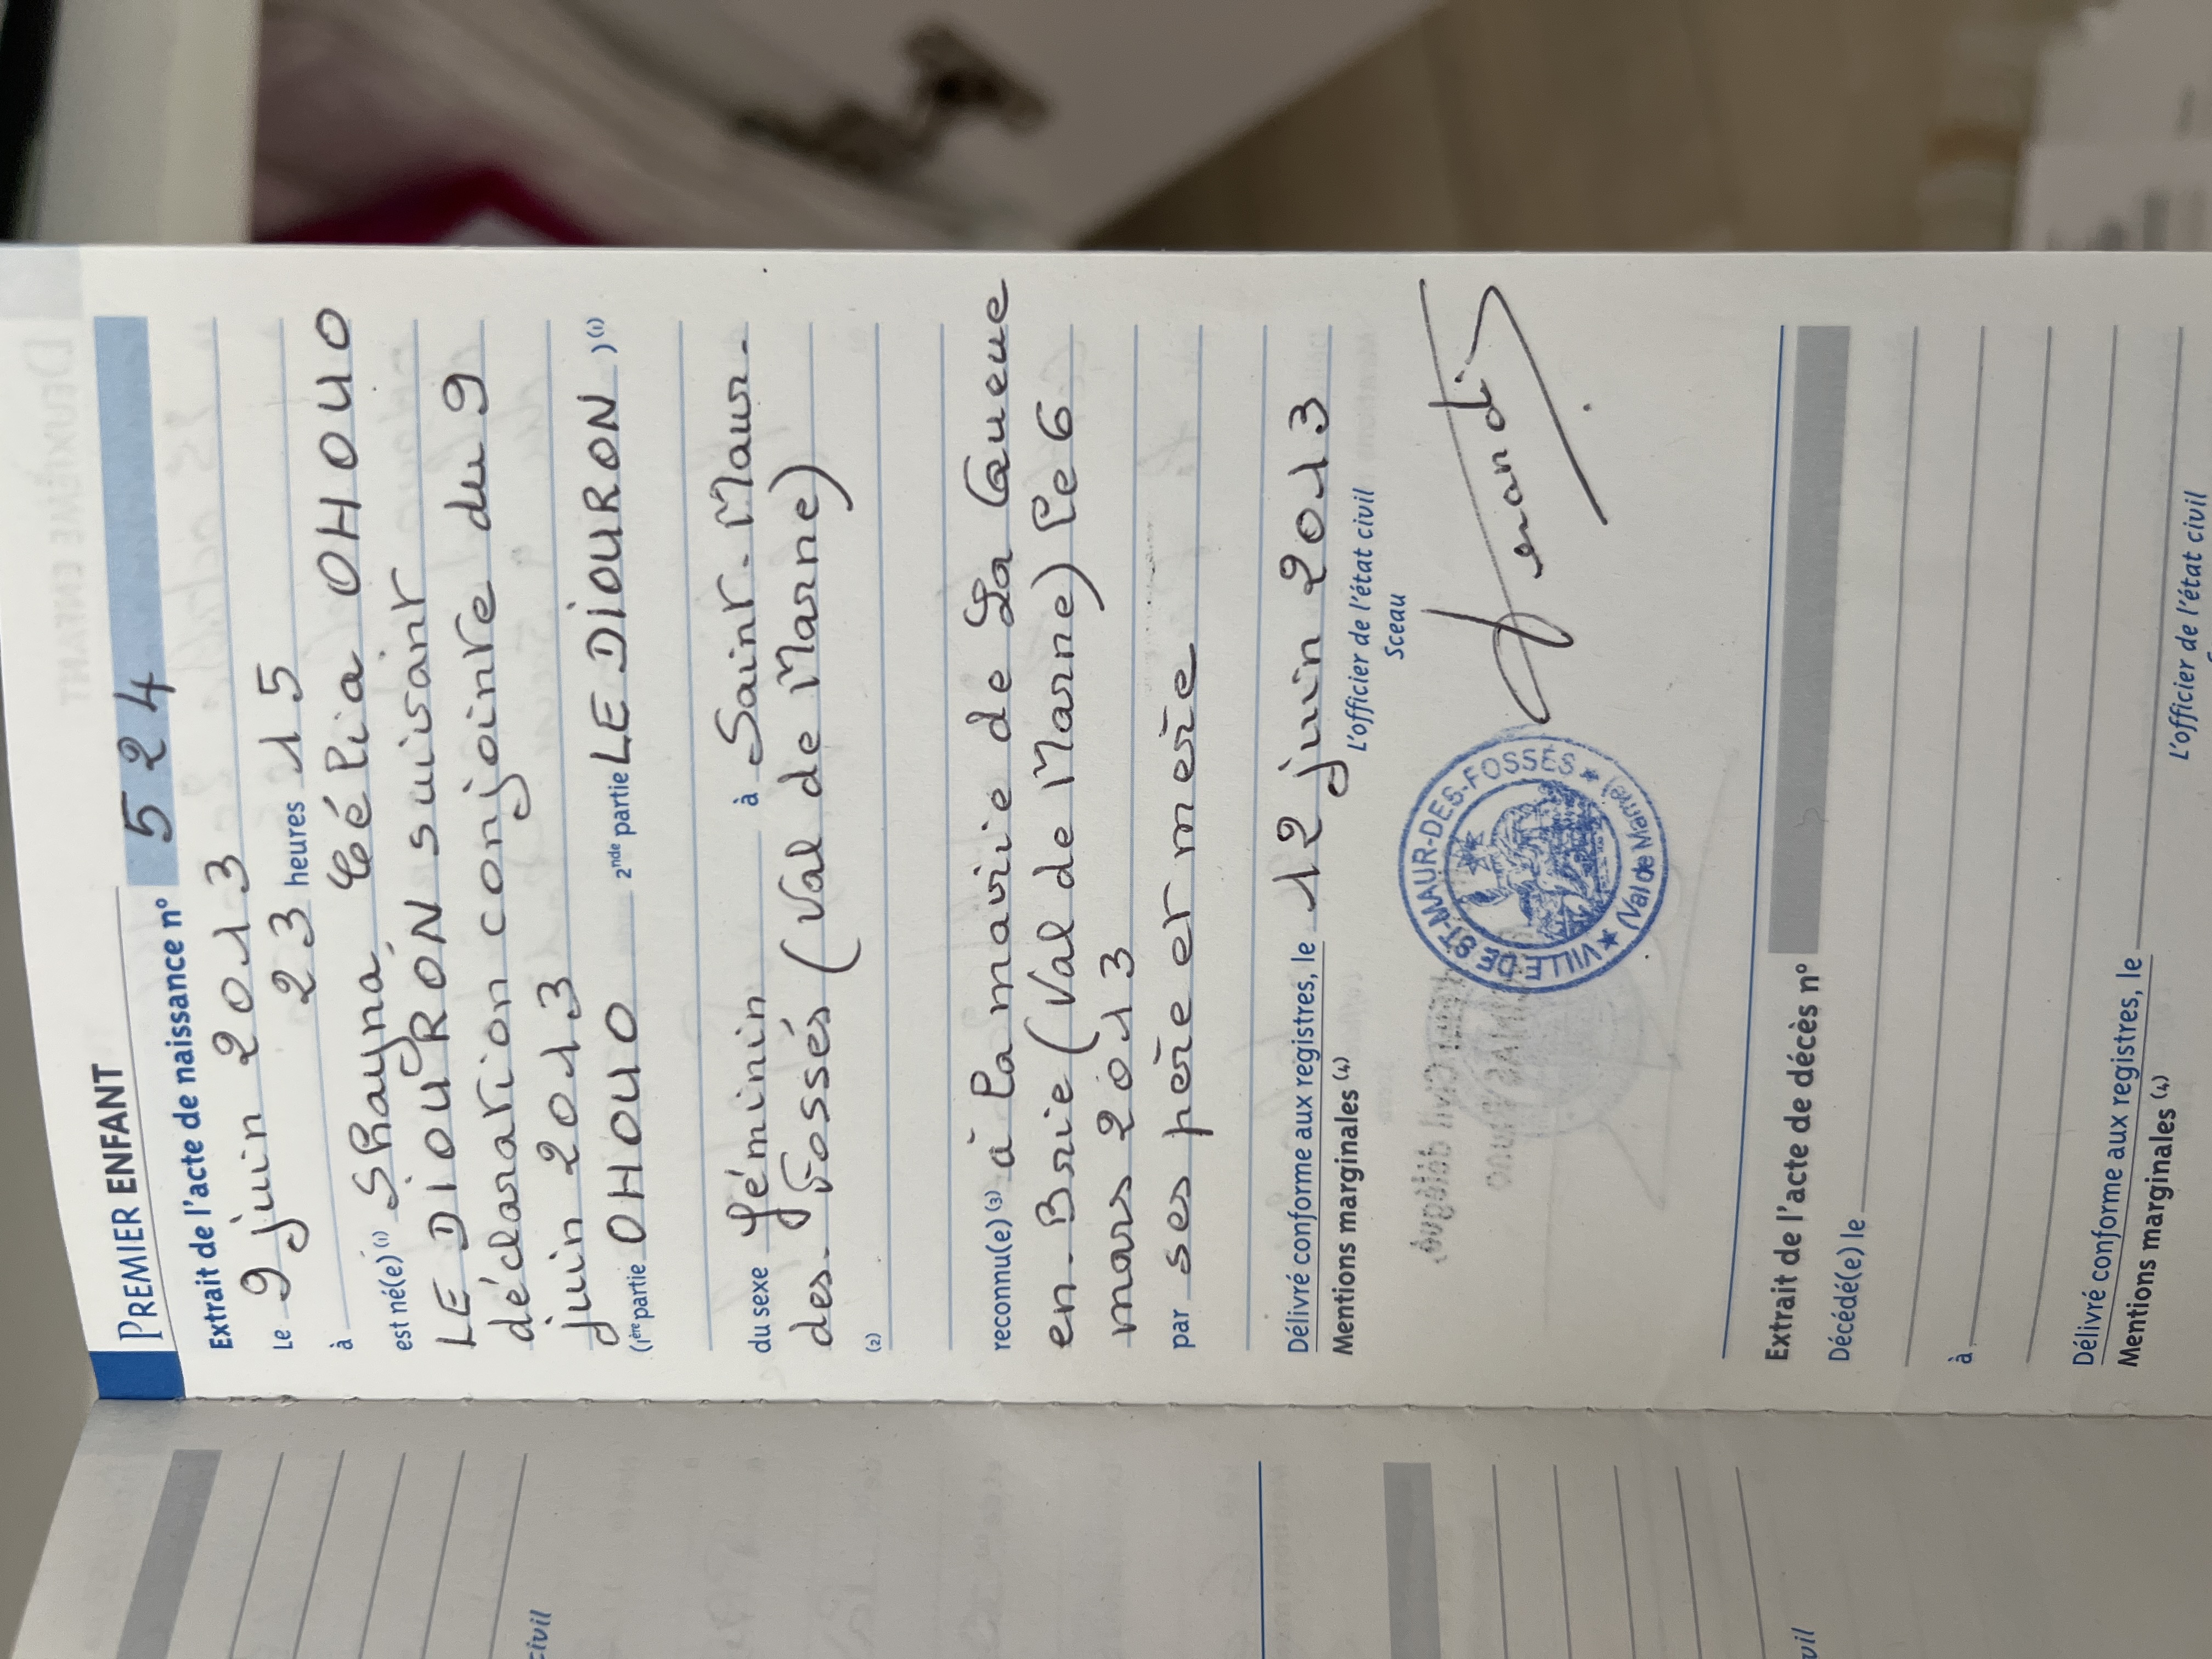 PREMIER ENFANT
Extrait de l'acte de naissance n° 524
Le 9 juin 2013
à 23 heures 15
est né(e) (1) Shayna, Célia OHOUO
LE DIOURON suivant
déclaration conjointe du 9
juin 2013
(1ère partie OHOUO 2nde partie LE DIOURON )(1)
du sexe féminin à Saint-Maur-
des-Fossés (Val de Marne)
(2)
reconnu(e) (3) à la mairie de La Queue
en-Brie (Val de Marne) le 6
mars 2013
par ses père et mère
Délivré conforme aux registres, le 12 juin 2013
Mentions marginales (4)
L'officier de l'état civil
Sceau
VILLE DE ST-MAUR-DES-FOSSÉS
(Val de Marne)
Extrait de l'acte de décès n°
Décédé(e) le
à
Délivré conforme aux registres, le
Mentions marginales (4)
L'officier de l'état civil
civil
vil